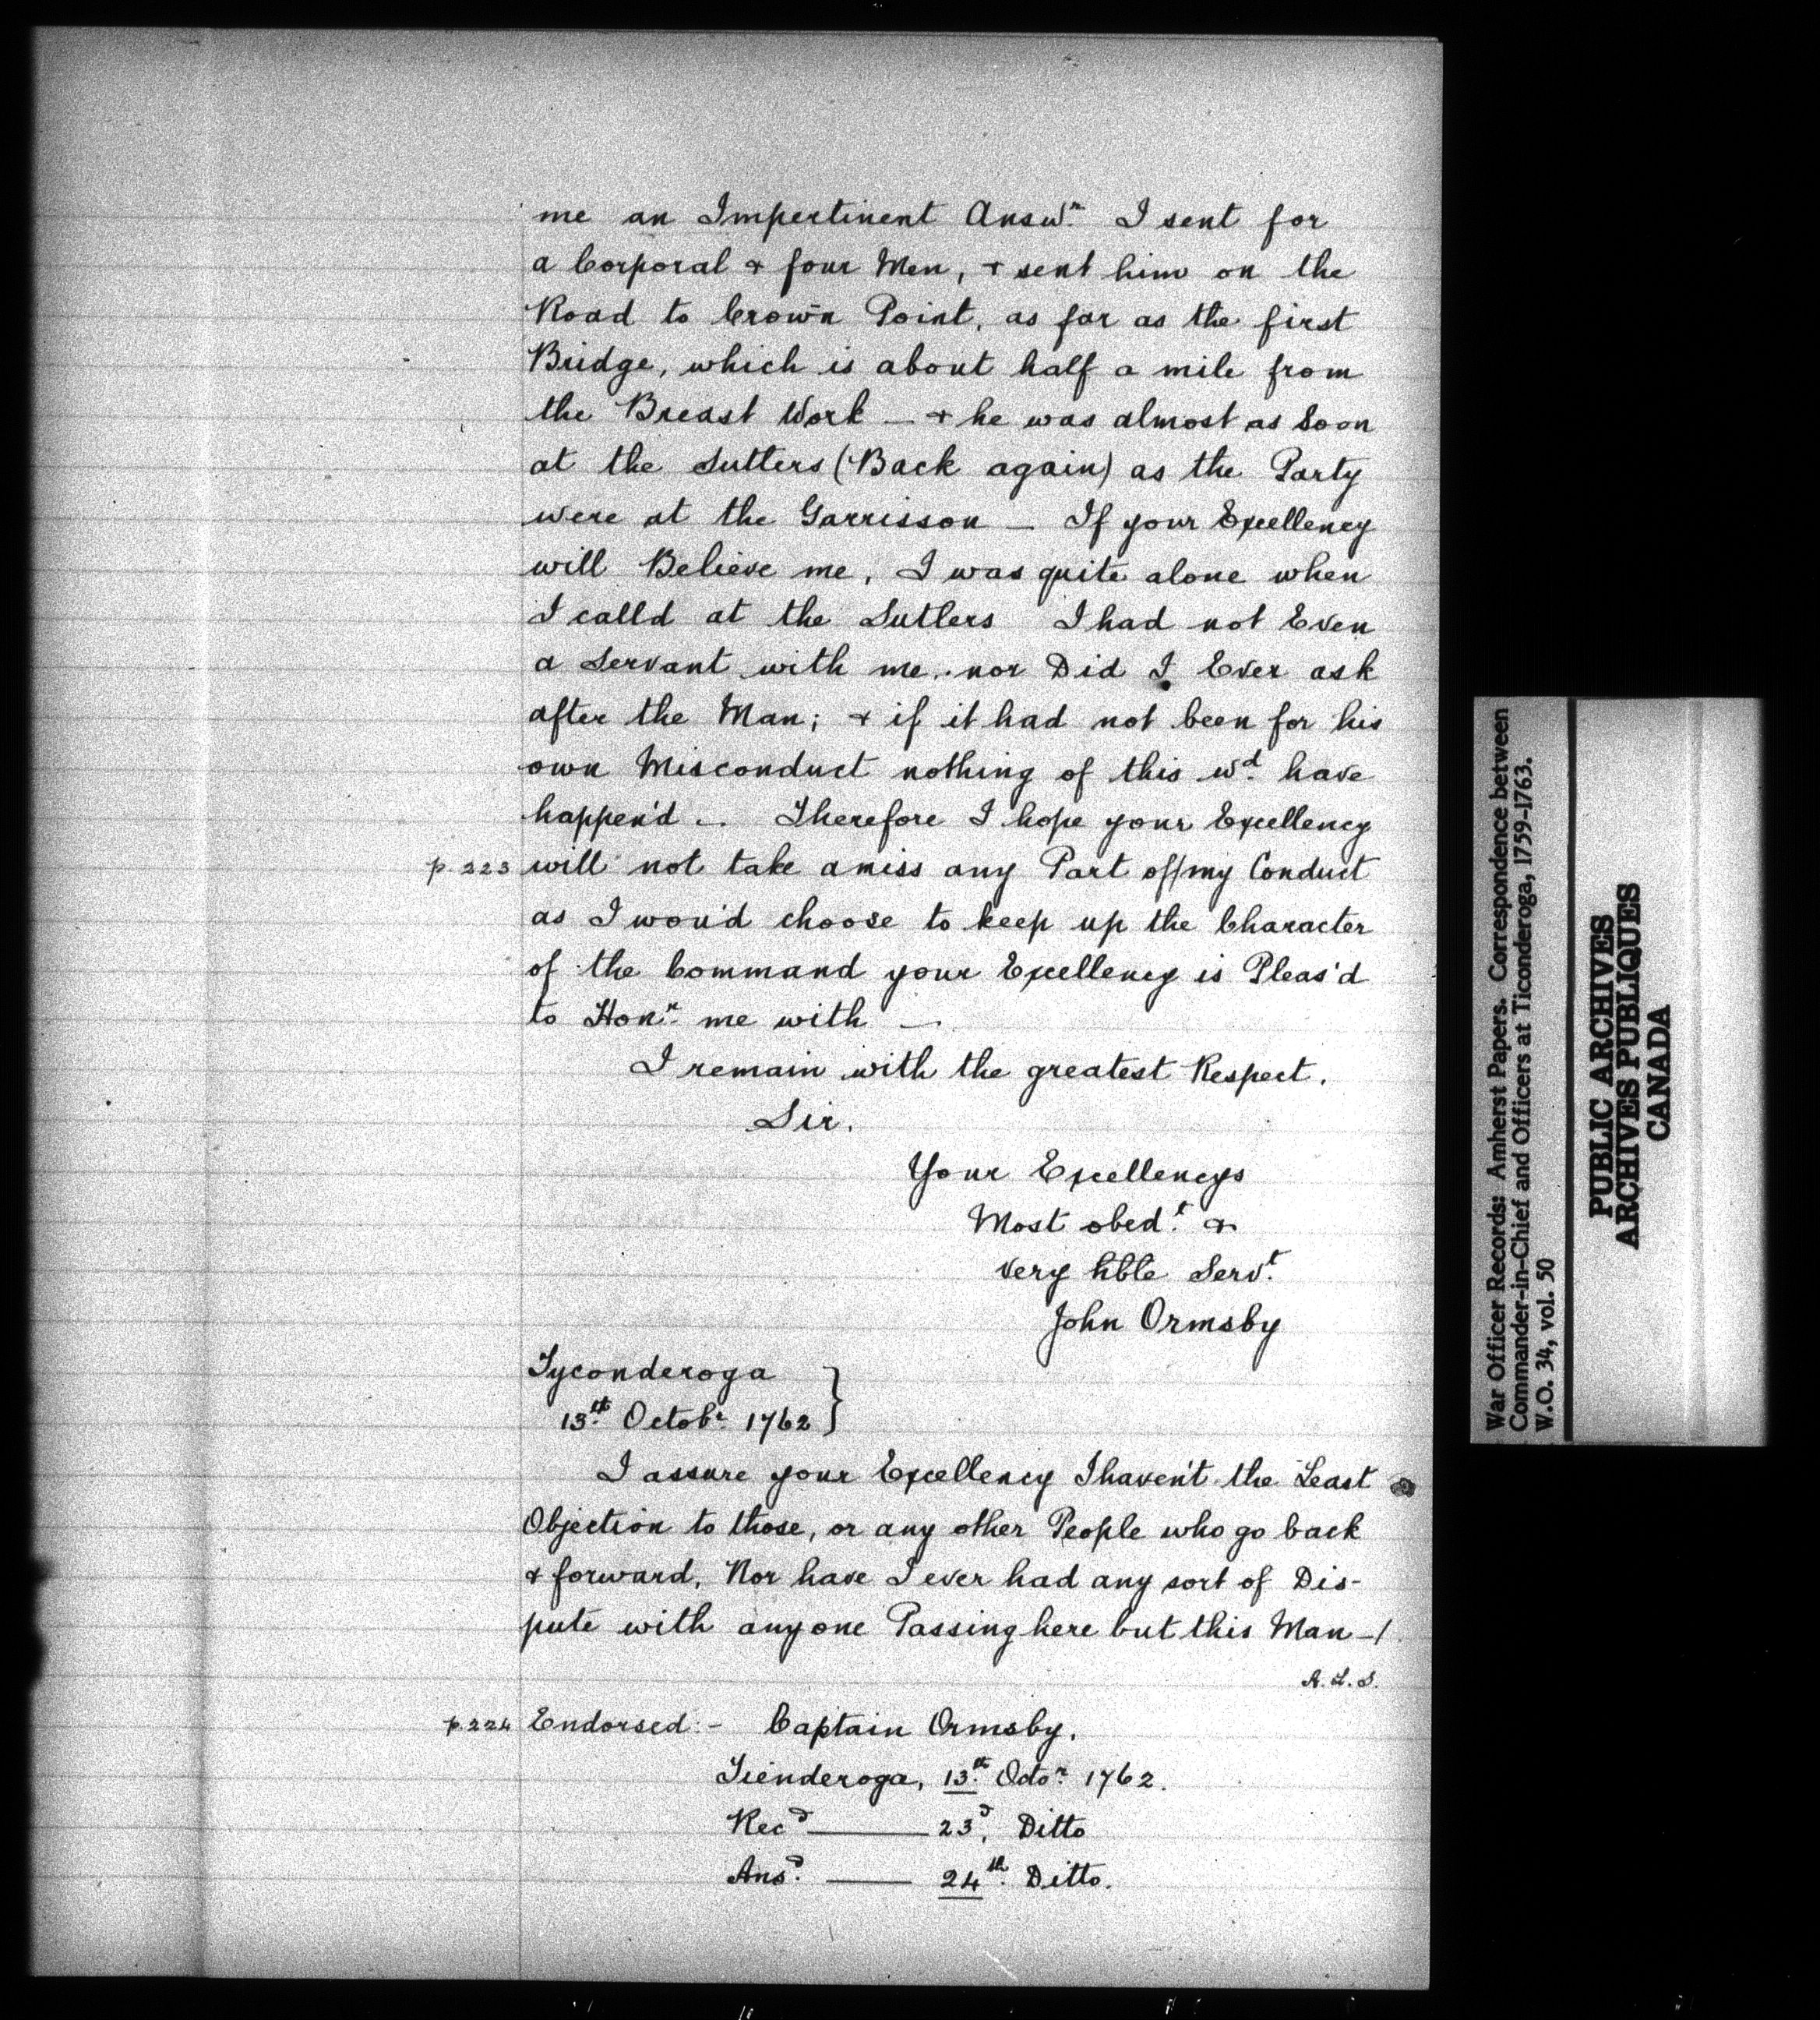 me an Impertinent Answ.r I sent for
a Corporal & four Men, & sent him on the
Road to Crown Point, as far as the first
Bridge, which is about half a mile from
the Breast Work — & he was almost as Soon
at the Sutlers (Back again) as the Party
were at the Garrisson — If your Excellency
will Believe me, I was quite alone when
I calld at the Sutlers I had not Even
a Servant with me, nor Did I Ever ask
after the Man; & if it had not been for his
own Misconduct nothing of this w.d have
happen'd — Therefore I hope your Excellency
p. 223 will not take amiss any Part off my Conduct
as I wou'd choose to keep up the Character
of the Command your Excellency is Pleas'd
to Hon.r me with —
I remain with the greatest Respect.
Sir.
Your Excellencys
Most obed.t &
very hble Serv.t
John Ormsby
Tyconderoga
13.th Octob.r 1762
I assure your Excellency I haven't the Least
Objection to those, or any other People who go back
& forward, Nor have I ever had any sort of Dis-
pute with anyone Passing here but this Man —/
A. L. S.
p. 224 Endorsed:- Captain Ormsby.
Tienderoga, 13.th Octo.r 1762.
Rec.d —— 23.d, Ditto
Ans.d —— 24.th Ditto.
War Officer Records: Amherst Papers. Correspondence between
Commander-in-Chief and Officers at Ticonderoga, 1759-1763.
W.O. 34, vol. 50
PUBLIC ARCHIVES
ARCHIVES PUBLIQUES
CANADA